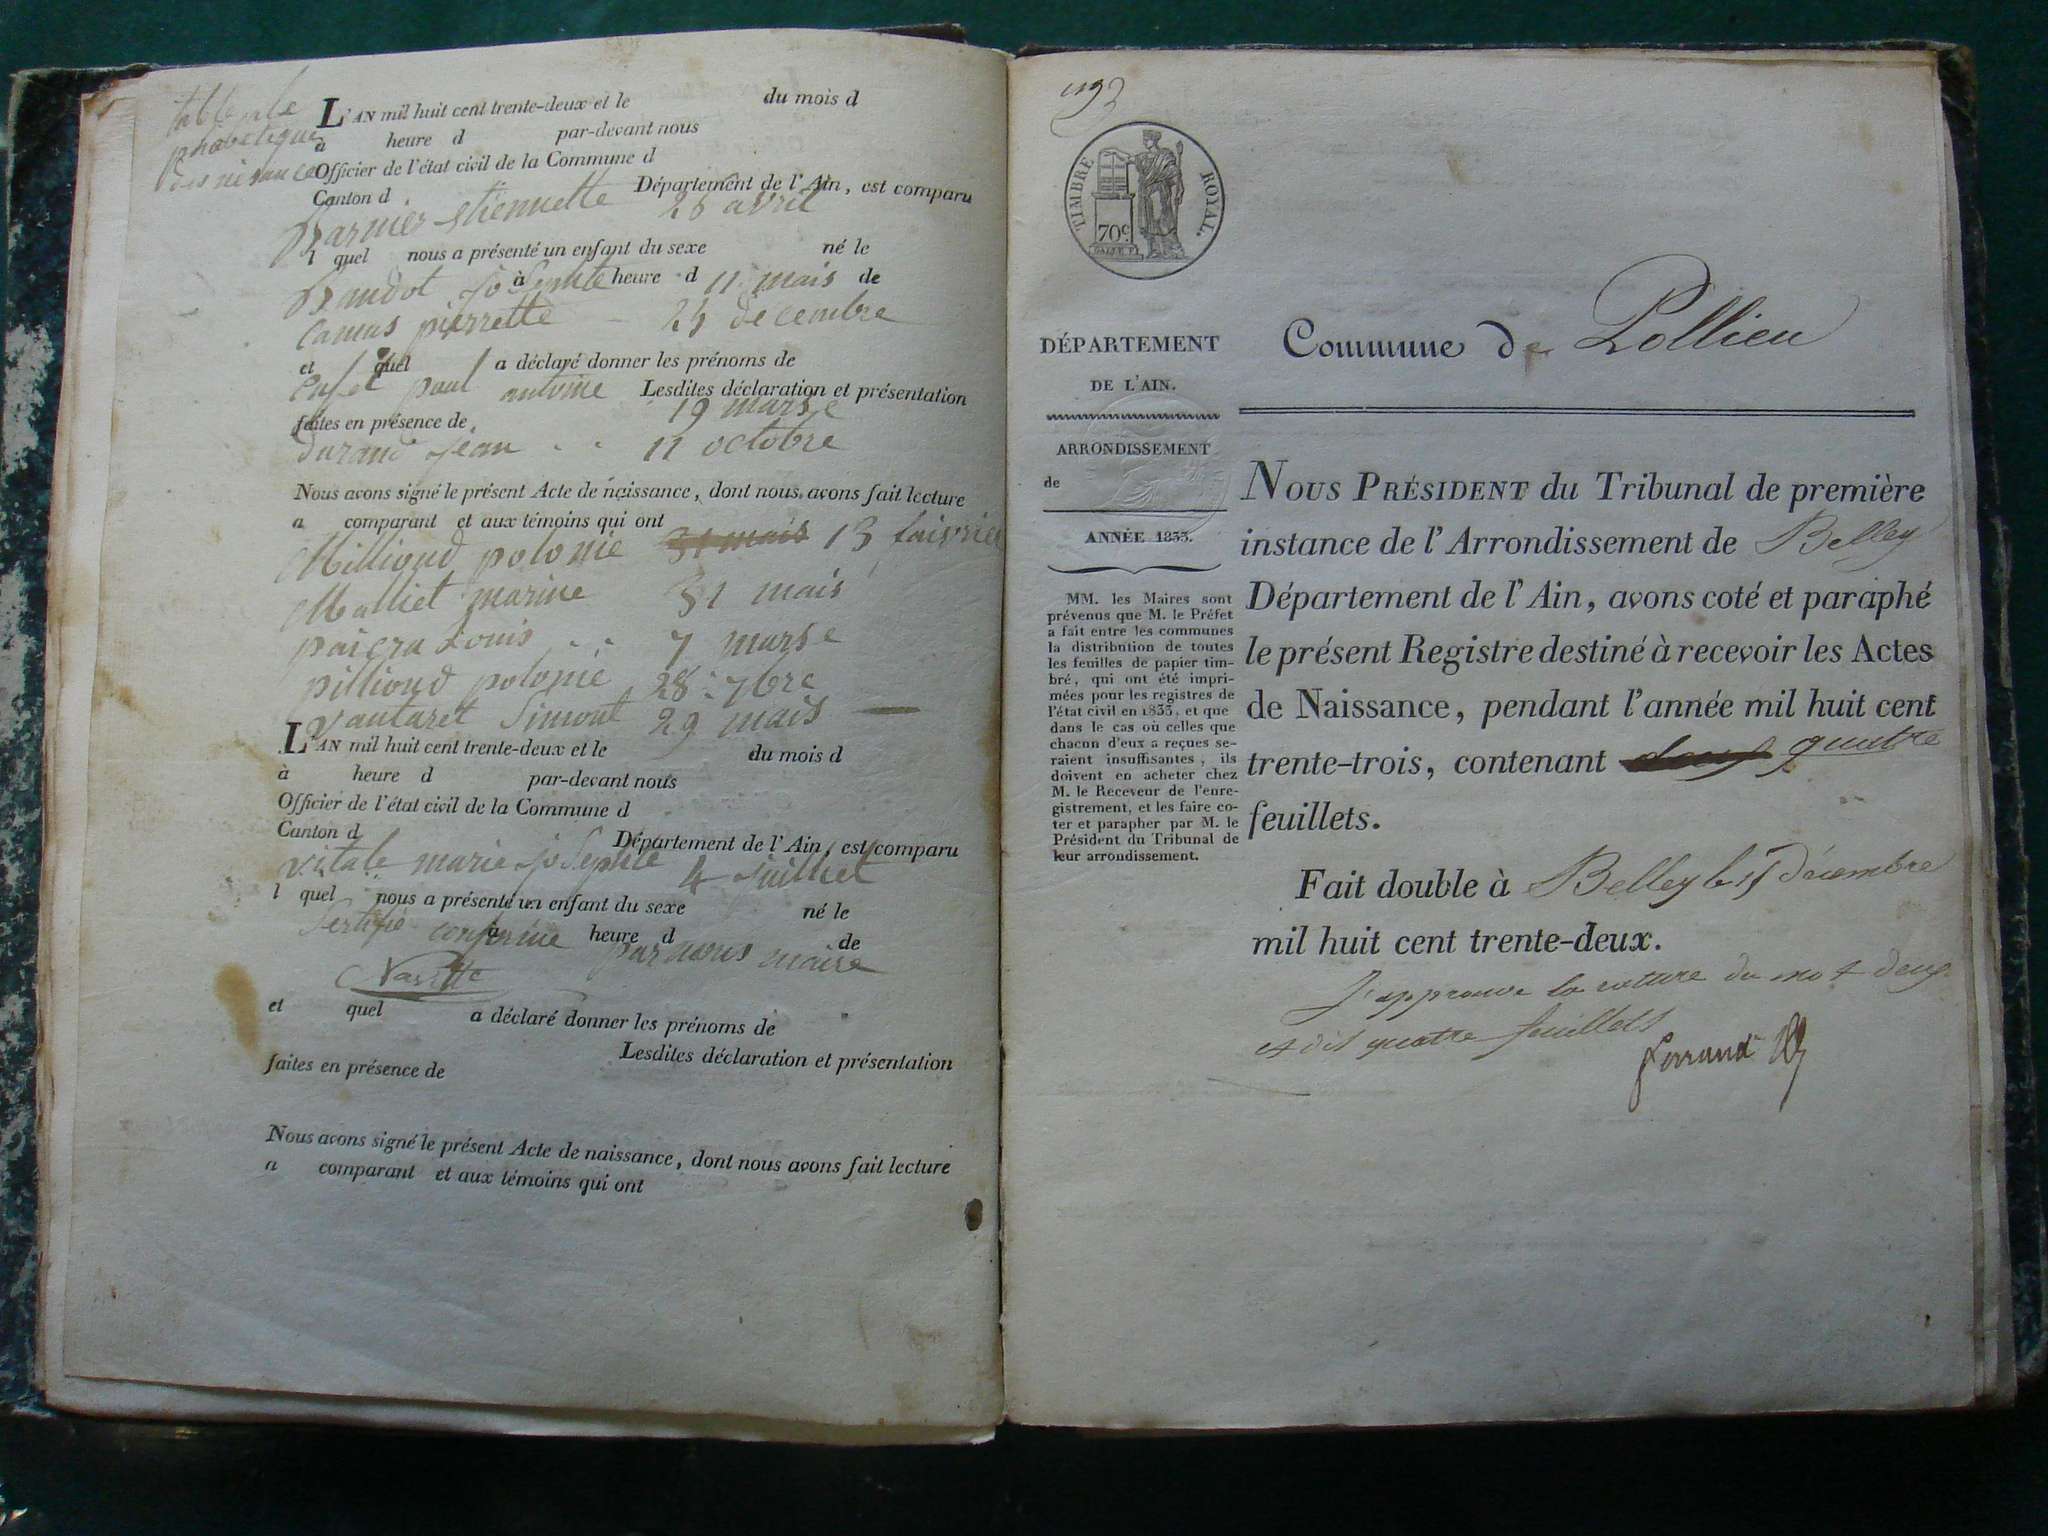 table alphabétique
des nesance
L'AN mil huit cent trente-deux et le du mois d
à heure d par-devant nous
Officier de l'état civil de la Commune d
Canton d Département de l'Ain, est comparu
Barnier etiennette 26 avril
l quel nous a présenté un enfant du sexe né le
Baudot joSephte 11 mais
à heure d de
Camus pierrette - 25 decembre
et quel a déclaré donner les prénoms de
paul antoine 19 marse
Lesdites déclaration et présentation
faites en présence de
durand jean 11 octobre
Nous avons signé le présent Acte de naissance, dont nous avons fait lecture
a comparant et aux témoins qui ont
Milliond polonie 31 mais 13 faivrier
Malliet marine 31 mais
paicra Louis 7 marse
pilliond polonie 28 7bre
vautaret Simont 29 mais
L'AN mil huit cent trente-deux et le du mois d
à heure d par-devant nous
Officier de l'état civil de la Commune d
Canton d Département de l'Ain, est comparu
vitale marie joSephte 4 Juilliet
l quel nous a présenté un enfant du sexe né le
Sertifie conforme par nous maire
à heure d de
et quel a déclaré donner les prénoms de
Lesdites déclaration et présentation
faites en présence de
Nous avons signé le présent Acte de naissance, dont nous avons fait lecture
a comparant et aux témoins qui ont
TIMBRE ROYAL.
70c
DÉPARTEMENT
DE L'AIN.
ARRONDISSEMENT
de
ANNÉE 1833.
MM. les Maires sont
prévenus que M. le Préfet
a fait entre les communes
la distribution de toutes
les feuilles de papier tim-
bré, qui ont été impri-
mées pour les registres de
l'état civil en 1833, et que
dans le cas où celles que
chacun d'eux a reçues se-
raient insuffisantes, ils
doivent en acheter chez
M. le Receveur de l'enre-
gistrement, et les faire co-
ter et parapher par M. le
Président du Tribunal de
leur arrondissement.
Commune de Pollieu
NOUS PRÉSIDENT du Tribunal de première
instance de l'Arrondissement de Belley
Département de l'Ain, avons coté et paraphé
le présent Registre destiné à recevoir les Actes
de Naissance, pendant l'année mil huit cent
trente-trois, contenant deux quatre
feuillets.
Fait double à Belley le 15 décembre
mil huit cent trente-deux.
J'approuve la rature du mot deux
et dis quatre feuillets